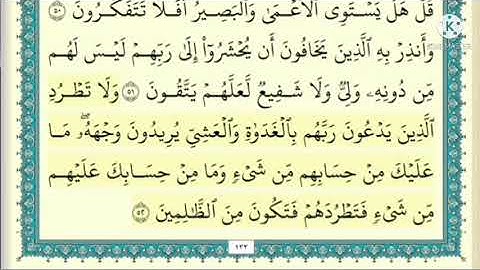 قُلْ هَلْ يَسْتَوِى ٱلْأَعْمَىٰ وَٱلْبَصِيرُ أَفَلَا تَتَفَكَّرُونَ ٥٠
وَأَنذِرْ بِهِ ٱلَّذِينَ يَخَافُونَ أَن يُحْشَرُوٓا۟ إِلَىٰ رَبِّهِمْ لَيْسَ لَهُم
مِّن دُونِهِۦ وَلِىٌّ وَلَا شَفِيعٌ لَّعَلَّهُمْ يَتَّقُونَ ٥١ وَلَا تَطْرُدِ
ٱلَّذِينَ يَدْعُونَ رَبَّهُم بِٱلْغَدَوٰةِ وَٱلْعَشِىِّ يُرِيدُونَ وَجْهَهُۥ ۖ مَا
عَلَيْكَ مِنْ حِسَابِهِم مِّن شَىْءٍ وَمَا مِنْ حِسَابِكَ عَلَيْهِم
مِّن شَىْءٍ فَتَطْرُدَهُمْ فَتَكُونَ مِنَ ٱلظَّٰلِمِينَ ٥٢
١٣٣